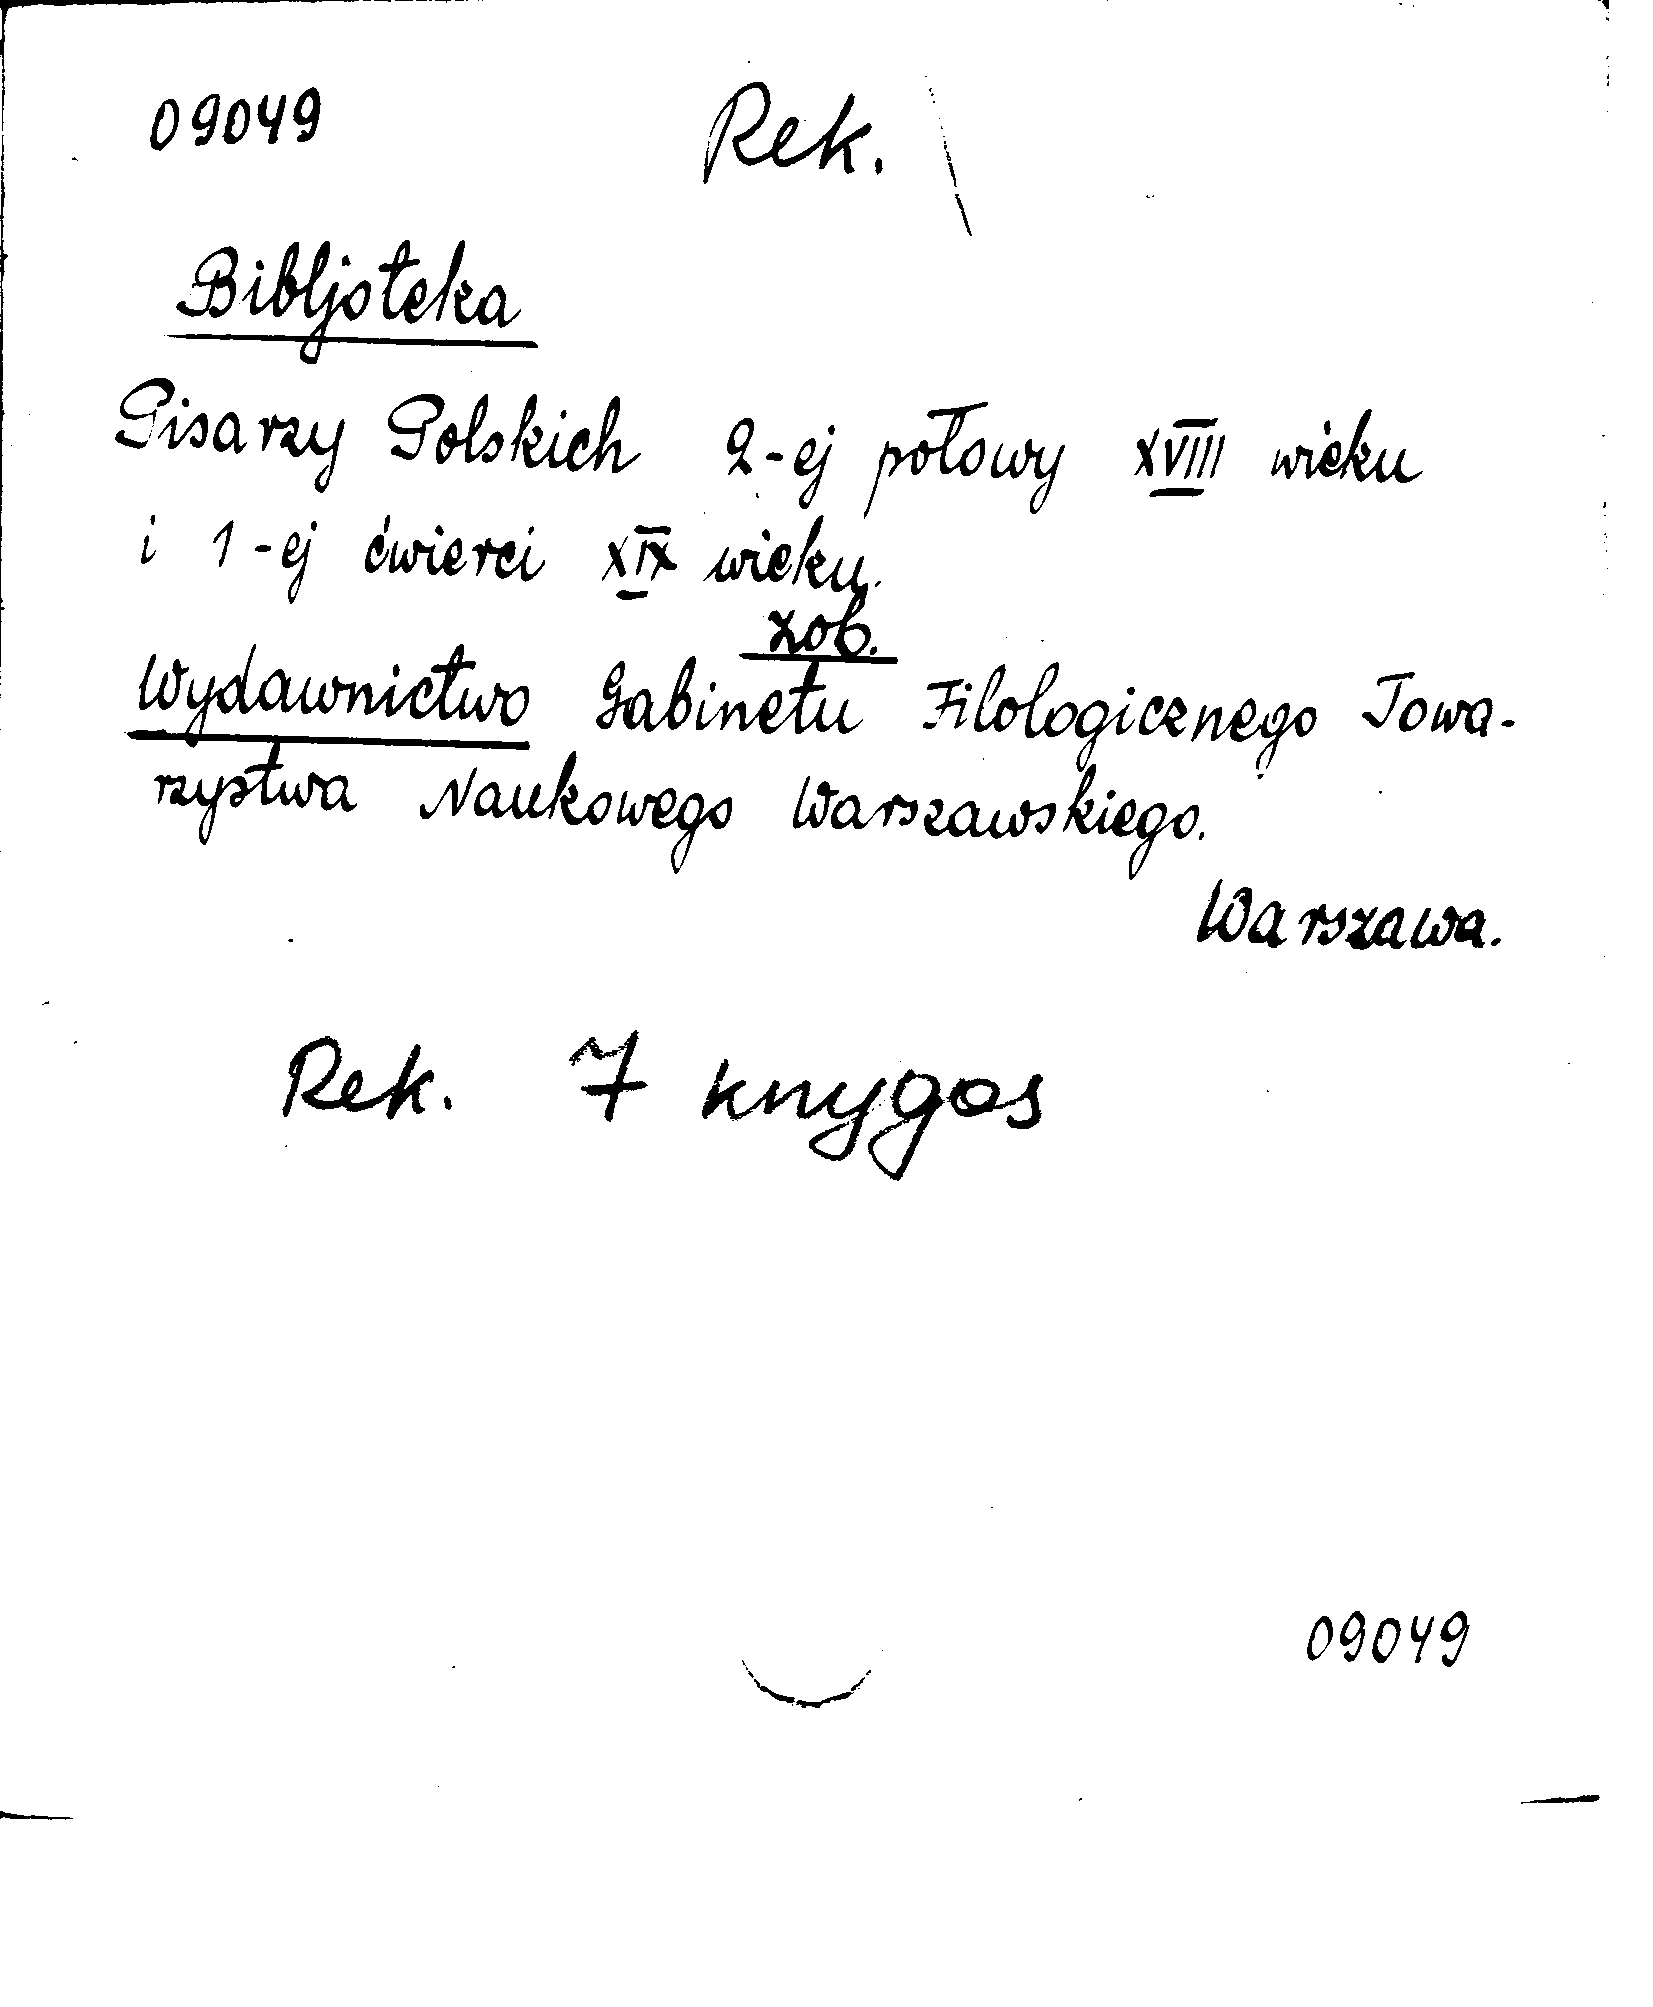 09049 Rek.
Bibljoteka
Pisarzy Polskich 2-ej połowy XVIII wieku
i 1-ej ćwierci XIX wieku.
zob.
Wydawnictwo Gabinetu Filologicznego Towa-
rzystwa Naukowego Warszawskiego.
Warszawa.
Rek. 7 knygos
09049